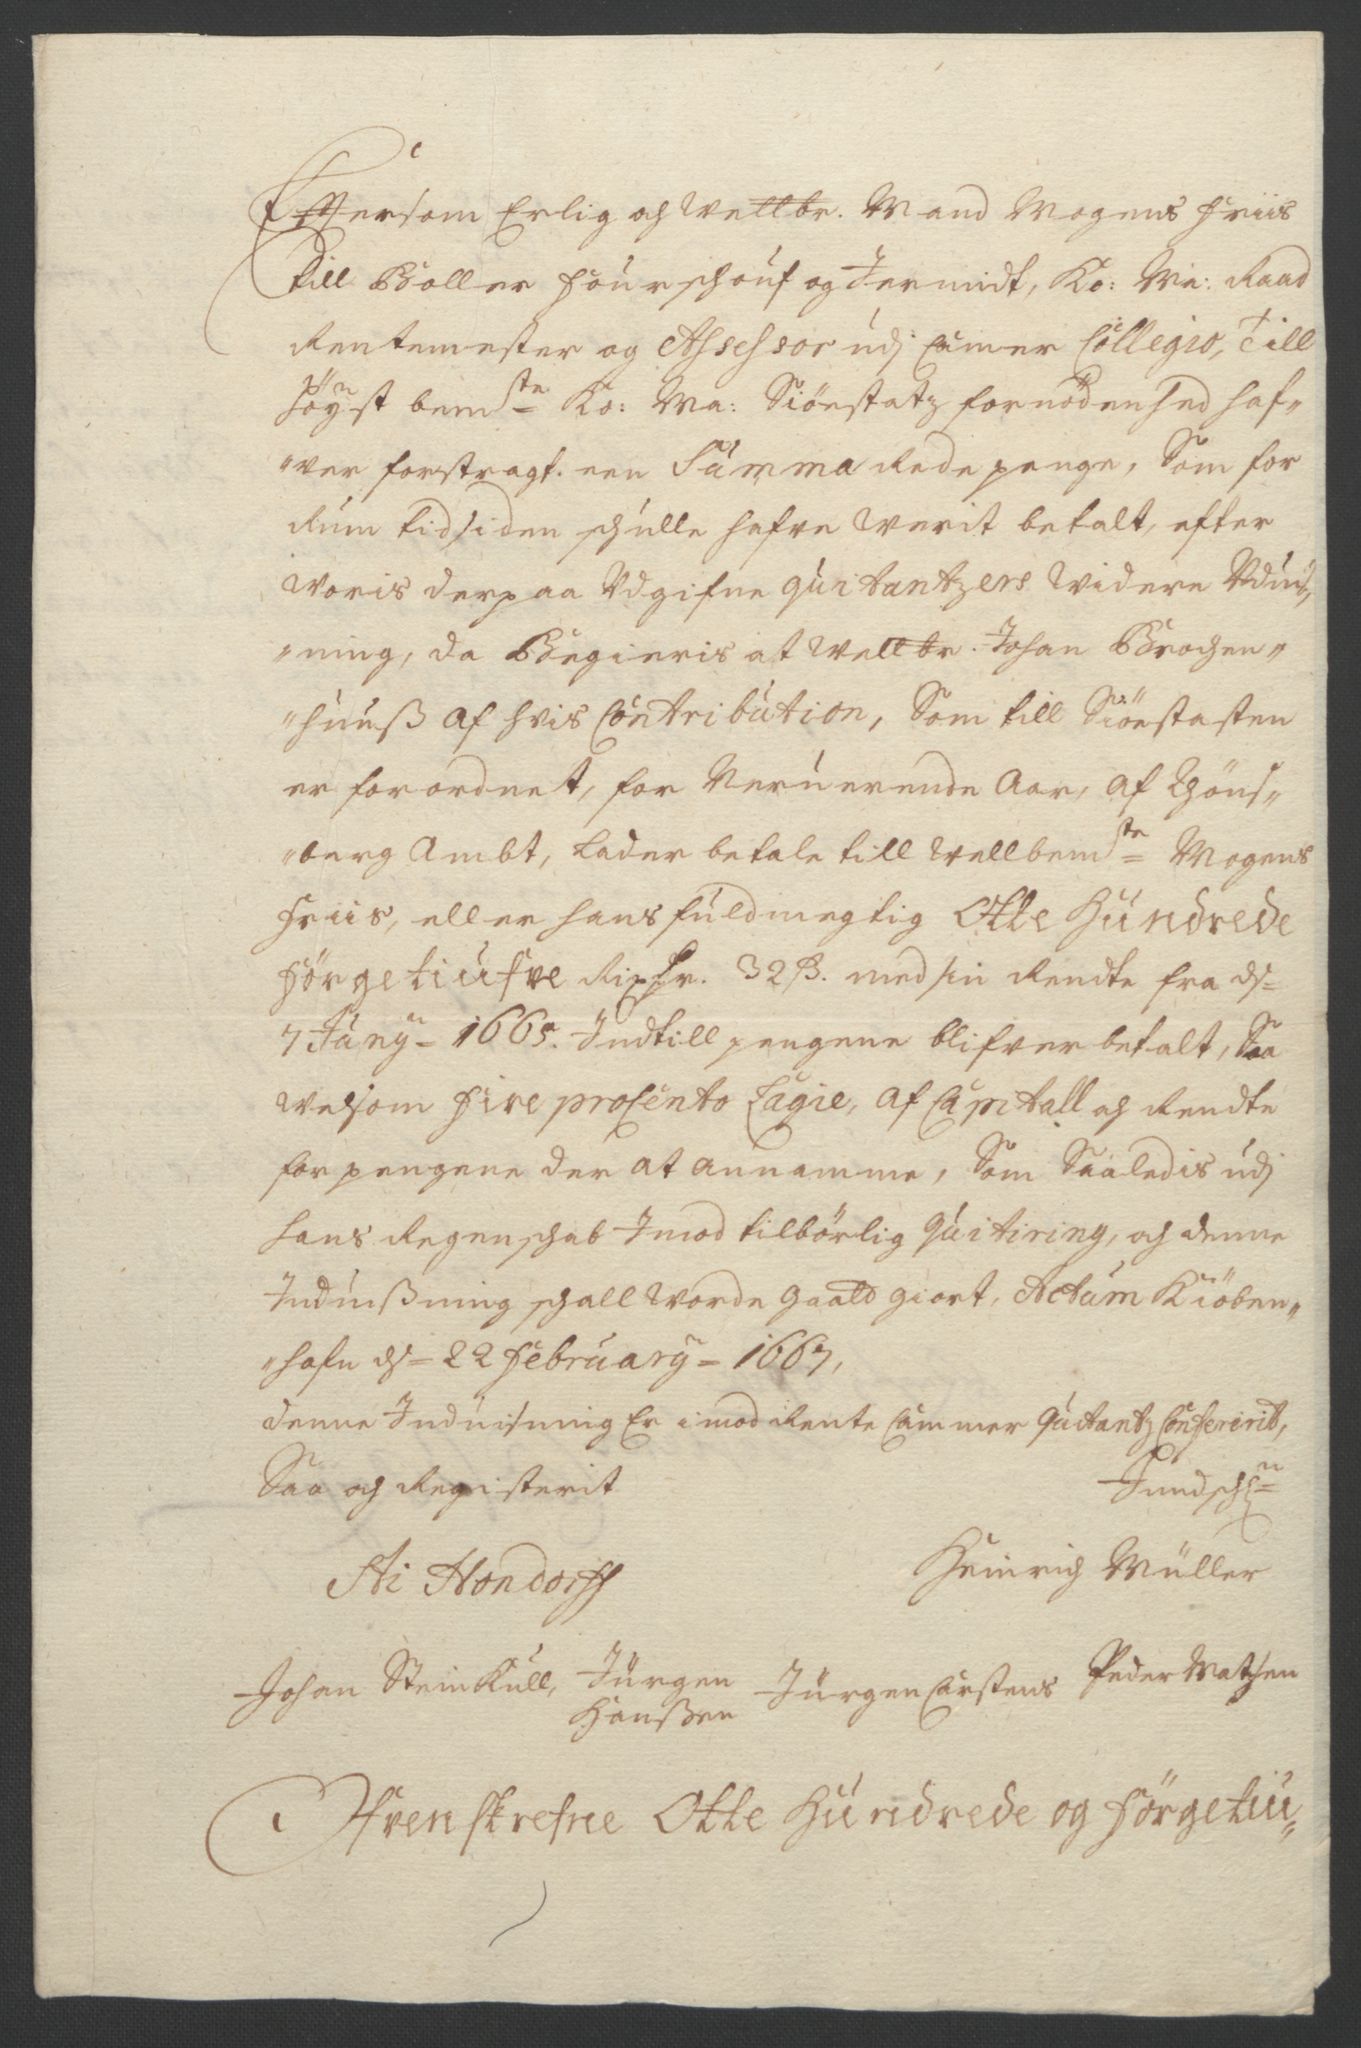 Eftersom Erlig och Wellbr. Mand Mogens Friis
till Boller Fourschouf og Jernidt, Ko: Ma: Raad
Rentemester og Assessor udj Camer Collegio, Till
Höyst bem^te Ko: Ma: Siöestatz fornödenhed haf„
„ver forstragt. een Summa Rede penge, Som for
Rum tid siden schulle hafve Werit betalt, efter
Woris derpaa Vdgifne quitantzers Widere Vduis„
„ning, da Begieris at Wellbr. Johan Brochen„
„huuß af hvis Contribution, Som till Siöestaten
er forordnet, for Neruerende Aar, af Thöns„
„berg Ambt, Lader betale till Wellbem^te Mogens
Friis, eller hans fuldmegtig Otte Hundrede
Förgetiufve Rixdr. 32 ß. med sin Rendte fra d=
7 Januy= 1665. Indtill pengene blifver betalt, Saa
Welsom Fire procento Lagie, af Capitall och Rendte
for pengene der at annamme, Som Saaledis udj
hans Regenschab Imod tilbörlig Quitiring, och denne
Induißning schall Worde gaatd giort, Actum Kiöben„
„hafn d= 22 February= 1667,
denne Induisning Er imod Rente Cammer Quitantz Confererit,
Saa och Registerit
H Hondorff
Heinrich Müller
Johan Steinkull, Jürgen Hanßen Jürgen Carstens Peder Matzen
Ofvenskrefne Otte Hundrede og Förgetiu„